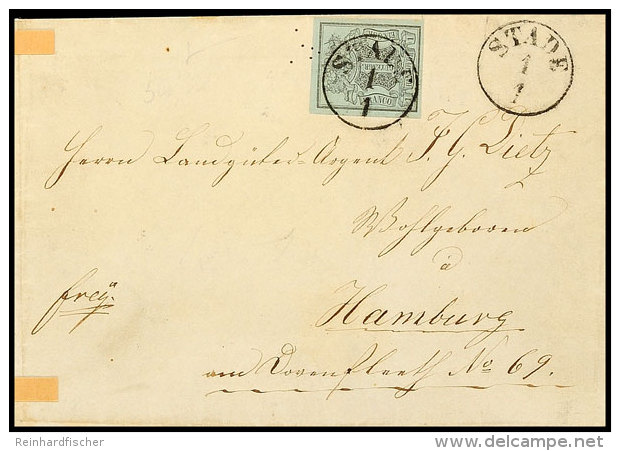 STADE
1
1
STADE
1
1
FRANCO
Herrn Landgüter-Agent J. G. Lietz
Wohlgeboren
à
frey.
Hamburg
am Dovenfleeth No 69.
Reinhardfischer
delcampe.net